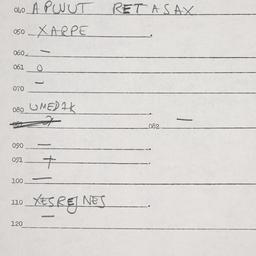 040 APWUT RETASAX
050 XARPE
060 —
061 0
070 —
080 UMED1K
082 —
090 —
091 +
100 —
110 XESREJ NES
120 —